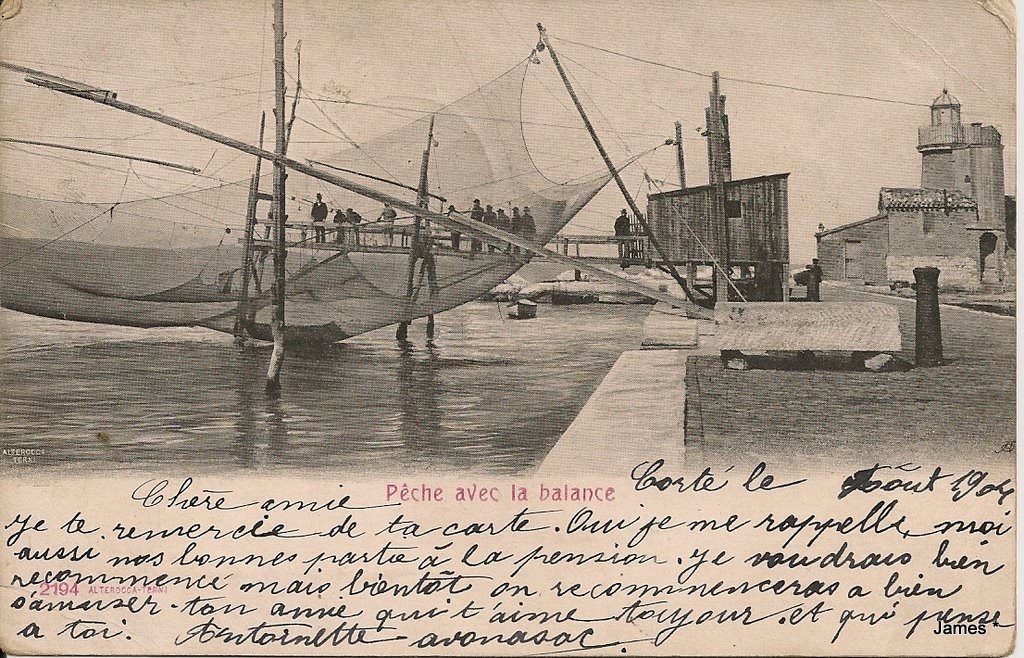 ALTEROCCA
TERNI
Pêche avec la balance
Corté le Août 1904
Chère amie
Je te remercie de ta carte. Oui je me rappelle, moi
aussi nos bonnes partie à la pension. Je voudrais bien
recommencé mais bientôt on recommenceras a bien
2194 ALTEROCCA-TERNI
s'amuser. ton amie qui t'aime toujour. et qui pense
a toi. Antoinette
James